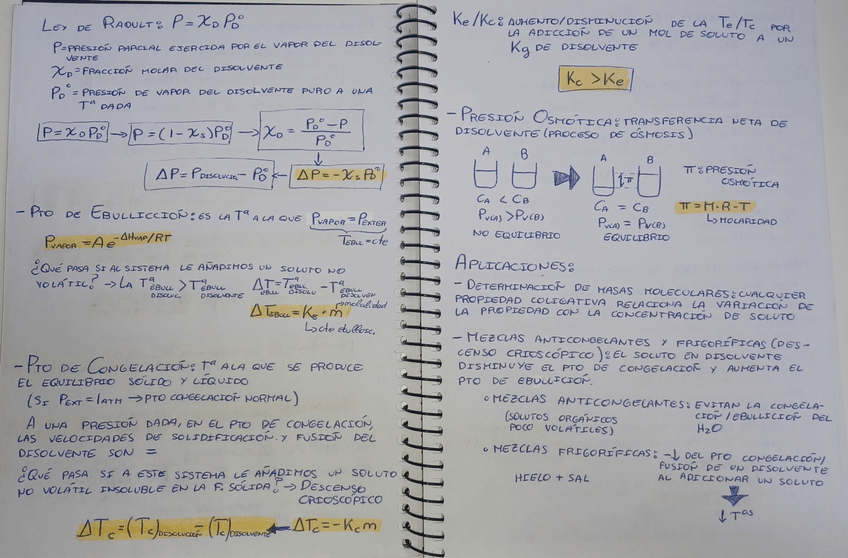 LEY DE RAOULT: P = χD PD°
P = PRESIÓN PARCIAL EJERCIDA POR EL VAPOR DEL DISOL-
VENTE
χD = FRACCIÓN MOLAR DEL DISOLVENTE
PD° = PRESIÓN DE VAPOR DEL DISOLVENTE PURO A UNA
Tª DADA
P = χD PD° → P = (1 - χS) PD° → χD = (PD° - P) / PD°
↓
ΔP = PDISOLUCIÓN - PD° ← ΔP = -χS PD°
- PTO DE EBULLICCIÓN: ES LA Tª A LA QUE PVAPOR = PEXTER
TEBULL = cte
PVAPOR = A e^(-ΔHVAP/RT)
¿QUÉ PASA SI AL SISTEMA LE AÑADIMOS UN SOLUTO NO
VOLÁTIL? → LA TªEBULL DISOLUC. > TªEBULL DISOLVENTE ΔTEBULL = TªEBULL DISOLU - TªEBULL DISOLVEN
molalidad
ΔTEBULL = Ke · m
↳ cte ebullosc.
- PTO DE CONGELACIÓN: Tª A LA QUE SE PRODUCE
EL EQUILIBRIO SÓLIDO Y LÍQUIDO
(SI PEXT = 1ATM → PTO CONGELACIÓN NORMAL)
A UNA PRESIÓN DADA, EN EL PTO DE CONGELACIÓN,
LAS VELOCIDADES DE SOLIDIFICACIÓN Y FUSIÓN DEL
DISOLVENTE SON =
¿QUÉ PASA SI A ESTE SISTEMA LE AÑADIMOS UN SOLUTO
NO VOLÁTIL INSOLUBLE EN LA F. SÓLIDA? → DESCENSO
CRIOSCÓPICO
ΔTc = (Tc)DISOLUCIÓN - (Tc)DISOLVENTE ← ΔTc = -Kc m
Ke/Kc: AUMENTO/DISMINUCIÓN DE LA Te/Tc POR
LA ADICCIÓN DE UN MOL DE SOLUTO A UN
Kg DE DISOLVENTE
Kc > Ke
- PRESIÓN OSMÓTICA: TRANSFERENCIA NETA DE
DISOLVENTE (PROCESO DE ÓSMOSIS)
A B A B
π
π: PRESIÓN
OSMÓTICA
CA < CB CA = CB
π = M·R·T
↳ MOLARIDAD
PV(A) > PV(B) PV(A) = PV(B)
NO EQUILIBRIO EQUILIBRIO
APLICACIONES:
- DETERMINACIÓN DE MASAS MOLECULARES: CUALQUIER
PROPIEDAD COLIGATIVA RELACIONA LA VARIACIÓN DE
LA PROPIEDAD CON LA CONCENTRACIÓN DE SOLUTO
- MEZCLAS ANTICONGELANTES Y FRIGORÍFICAS (DES-
CENSO CRIOSCÓPICO): EL SOLUTO EN DISOLVENTE
DISMINUYE EL PTO DE CONGELACIÓN Y AUMENTA EL
PTO DE EBULLICIÓN.
° MEZCLAS ANTICONGELANTES: EVITAN LA CONGELA-
(SOLUTOS ORGÁNICOS CIÓN/EBULLICIÓN DEL
POCO VOLÁTILES) H2O
° MEZCLAS FRIGORÍFICAS: -↓ DEL PTO CONGELACIÓN/
FUSIÓN DE UN DISOLVENTE
HIELO + SAL AL ADICIONAR UN SOLUTO
↓ Tªs